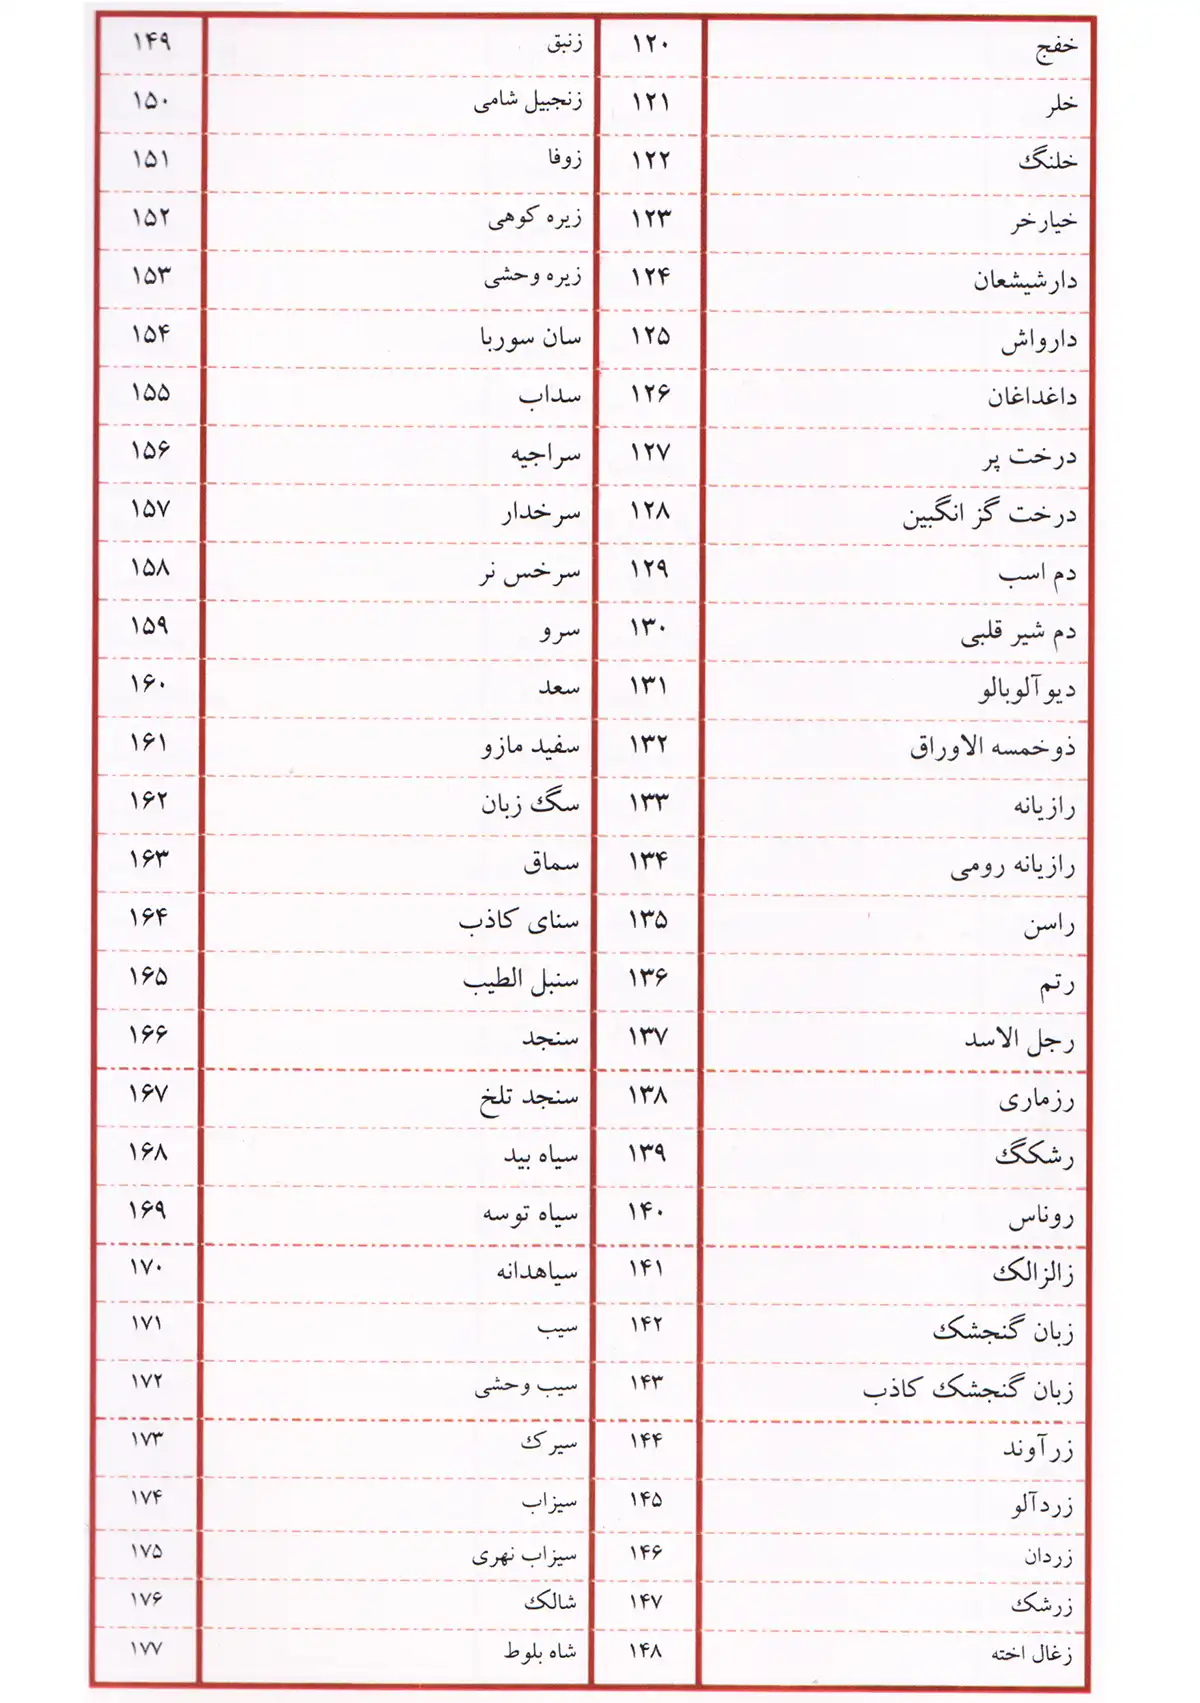 خفج ۱۲۰ زنبق ۱۴۹
خلر ۱۲۱ زنجبیل شامی ۱۵۰
خلنگ ۱۲۲ زوفا ۱۵۱
خیارخر ۱۲۳ زیره کوهی ۱۵۲
دارشیشعان ۱۲۴ زیره وحشی ۱۵۳
دارواش ۱۲۵ سان سوربا ۱۵۴
داغداغان ۱۲۶ سداب ۱۵۵
درخت پر ۱۲۷ سراجیه ۱۵۶
درخت گز انگبین ۱۲۸ سرخدار ۱۵۷
دم اسب ۱۲۹ سرخس نر ۱۵۸
دم شیر قلبی ۱۳۰ سرو ۱۵۹
دیوآلوبالو ۱۳۱ سعد ۱۶۰
ذوخمسه الاوراق ۱۳۲ سفید مازو ۱۶۱
رازیانه ۱۳۳ سگ زبان ۱۶۲
رازیانه رومی ۱۳۴ سماق ۱۶۳
راسن ۱۳۵ سنای کاذب ۱۶۴
رتم ۱۳۶ سنبل الطیب ۱۶۵
رجل الاسد ۱۳۷ سنجد ۱۶۶
رزماری ۱۳۸ سنجد تلخ ۱۶۷
رشکگ ۱۳۹ سیاه بید ۱۶۸
روناس ۱۴۰ سیاه توسه ۱۶۹
زالزالک ۱۴۱ سیاهدانه ۱۷۰
زبان گنجشک ۱۴۲ سیب ۱۷۱
زبان گنجشک کاذب ۱۴۳ سیب وحشی ۱۷۲
زرآوند ۱۴۴ سیرک ۱۷۳
زردآلو ۱۴۵ سیزاب ۱۷۴
زردان ۱۴۶ سیزاب نهری ۱۷۵
زرشک ۱۴۷ شالک ۱۷۶
زغال اخته ۱۴۸ شاه بلوط ۱۷۷